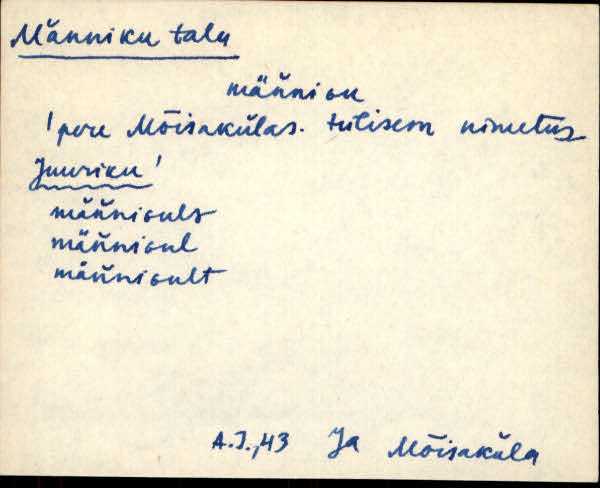 Männiku talu
männiɢu
'pere Mõisakülas. hilisem nimetus
Juuriku'
männiɢuls
männiɢul
männiɢult
A.J., 43 Ja Mõisaküla